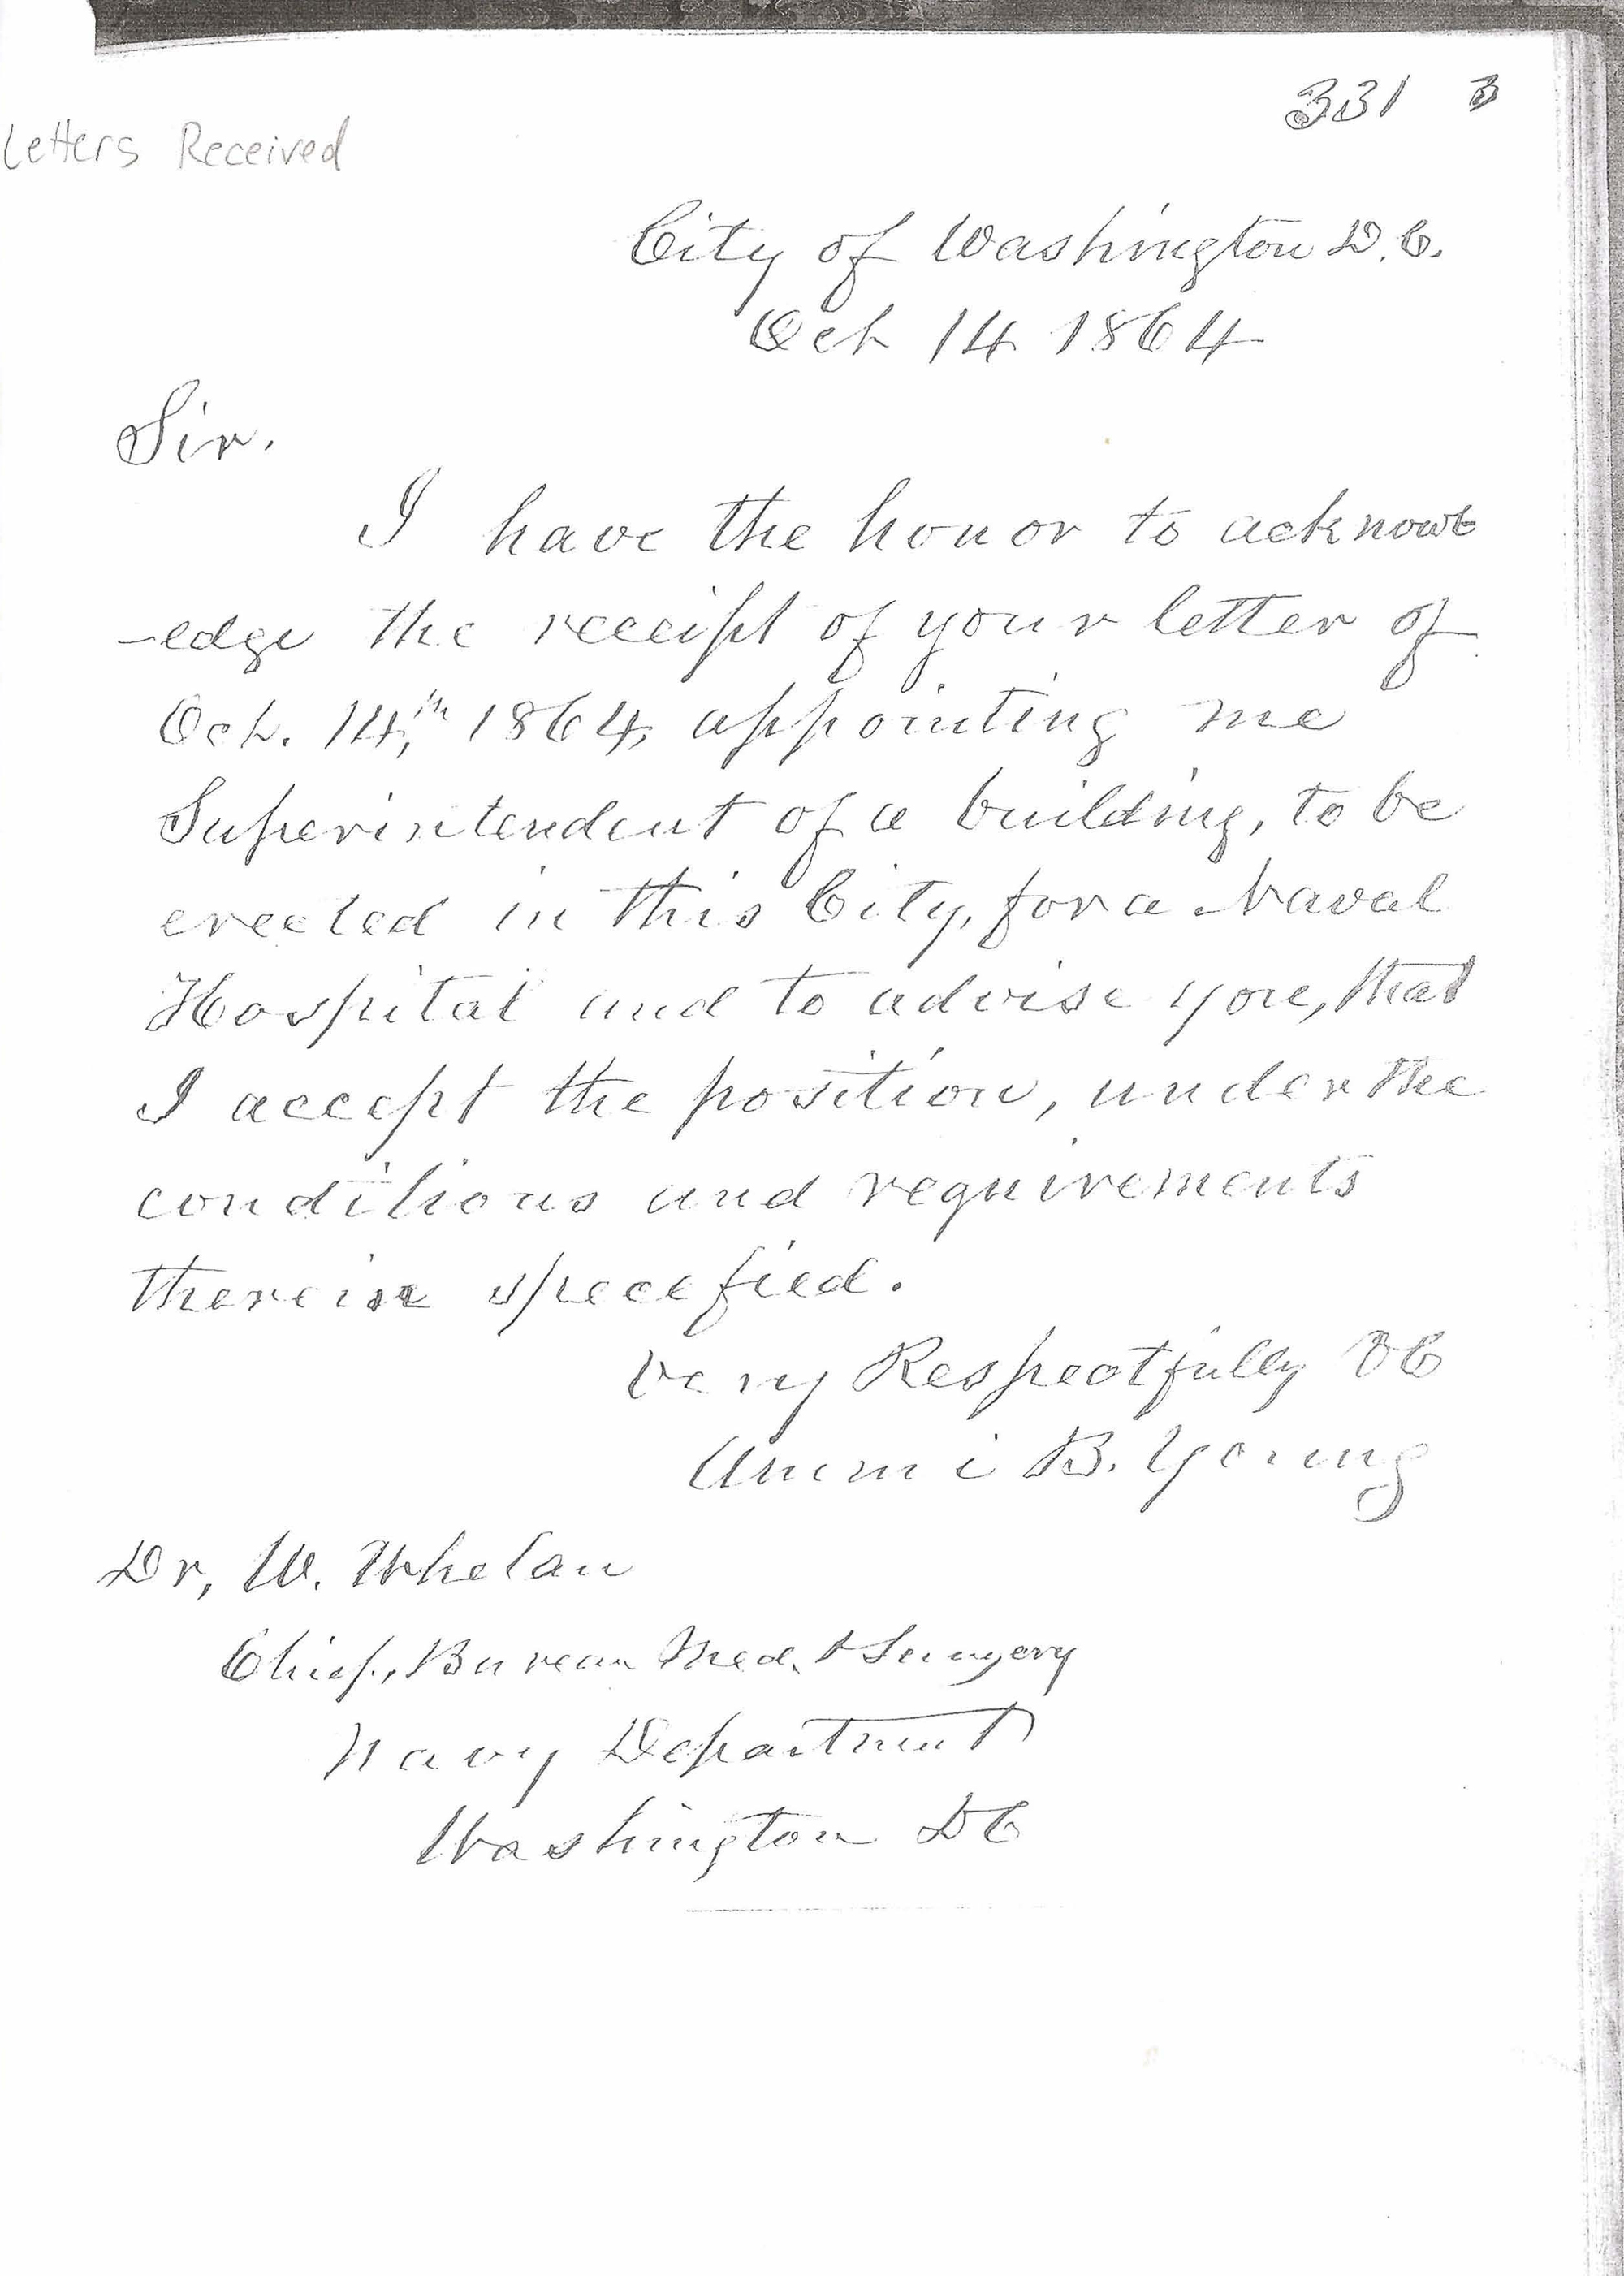 331 3
Letters Received
City of Washington D.C.
Oct 14 1864
Sir.
I have the honor to acknowl
-edge the receipt of your letter of
Oct. 14th, 1864, appointing me
Superintendent of a building, to be
erected in this City, for a Naval
Hospital and to advise you, that
I accept the position, under the
conditions and requirements
therein specefied.
Very Respectfully
Ammi B. Young
Dr, W. Whelan
Chief, Bureau Med. & Surgery
Navy Department
Washington DC